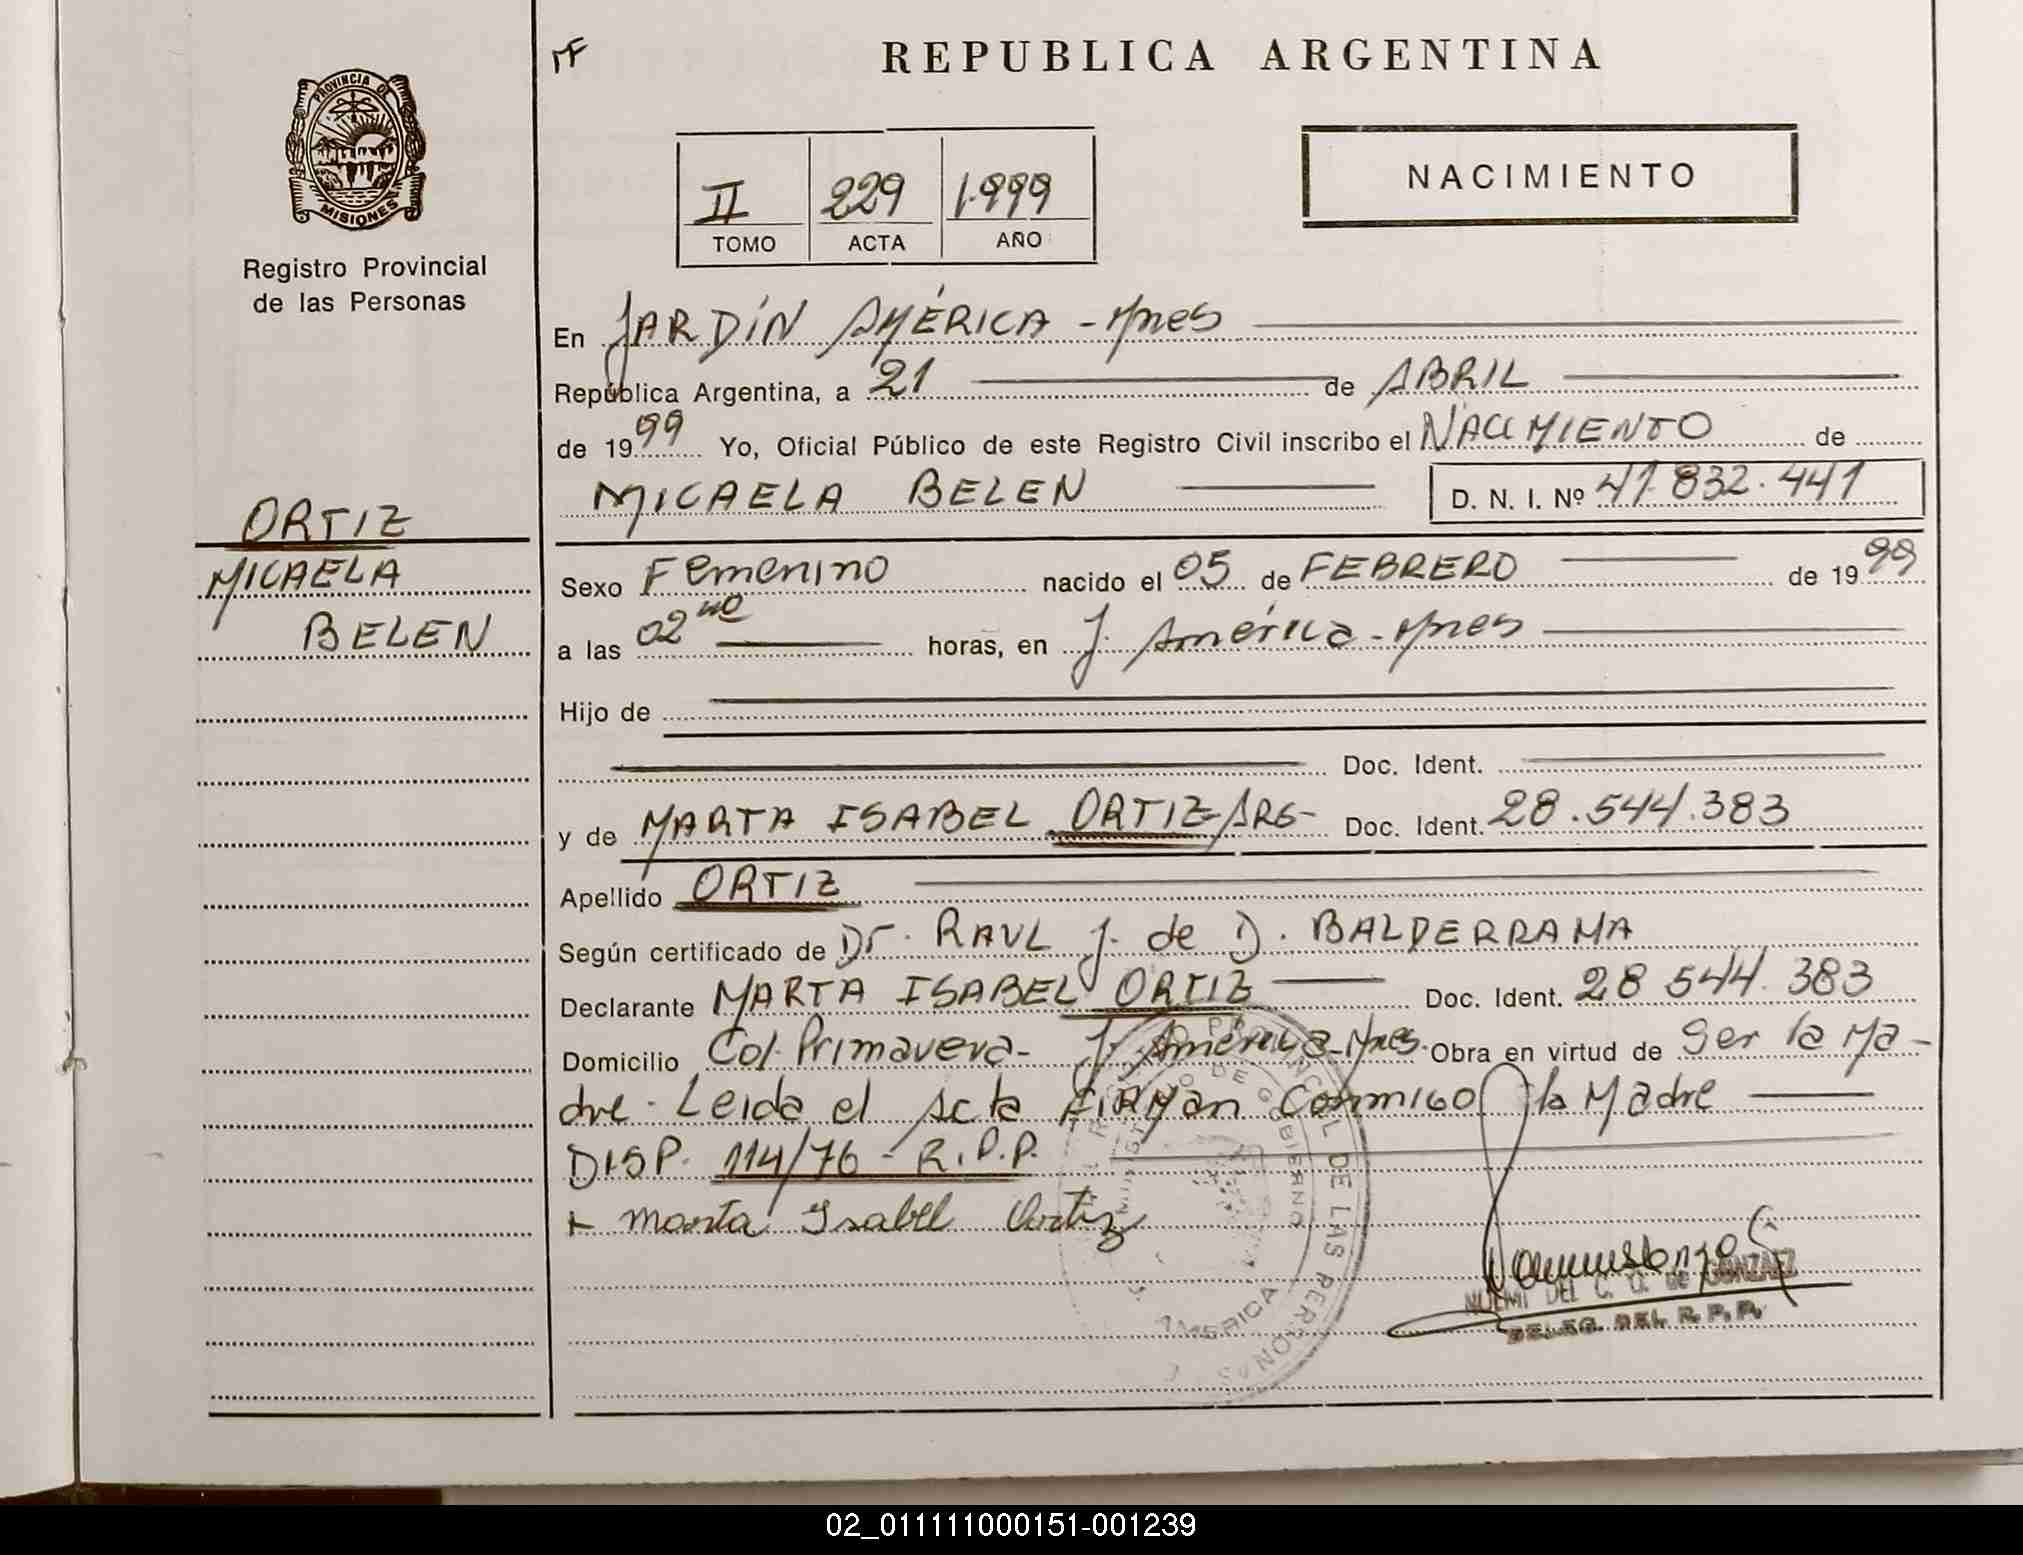 MF
REPUBLICA ARGENTINA
PROVINCIA DE
MISIONES
Registro Provincial
de las Personas
II 229 1.999
TOMO ACTA AÑO
NACIMIENTO
En JARDÍN AMÉRICA - Mnes
República Argentina, a 21 de ABRIL
de 1999 Yo, Oficial Público de este Registro Civil inscribo el NACIMIENTO de
MICAELA BELEN D. N. I. Nº 41.832.441
ORTIZ
MICAELA
BELEN
Sexo Femenino nacido el 05 de FEBRERO de 1999
a las 02 horas, en J. América - Mnes
Hijo de
Doc. Ident.
y de MARTA ISABEL ORTIZ - ARG - Doc. Ident. 28.544.383
Apellido ORTIZ
Según certificado de Dr. RAUL J. de D. BALDERRAMA
Declarante MARTA ISABEL ORTIZ Doc. Ident. 28 544.383
Domicilio Col. Primavera - J. América - Mnes. Obra en virtud de Ser la Ma-
dre. Leida el Acta FIRMAn ConmIGO la Madre
DISP. 114/76 - R.P.P.
+ Marta Isabel Ortiz
DE GOBIERNO
DE LAS PERSONAS
AMERICA
NOEMI DEL C. D. DE GONZALEZ
DELEG. DEL R. P. P.
02_011111000151-001239